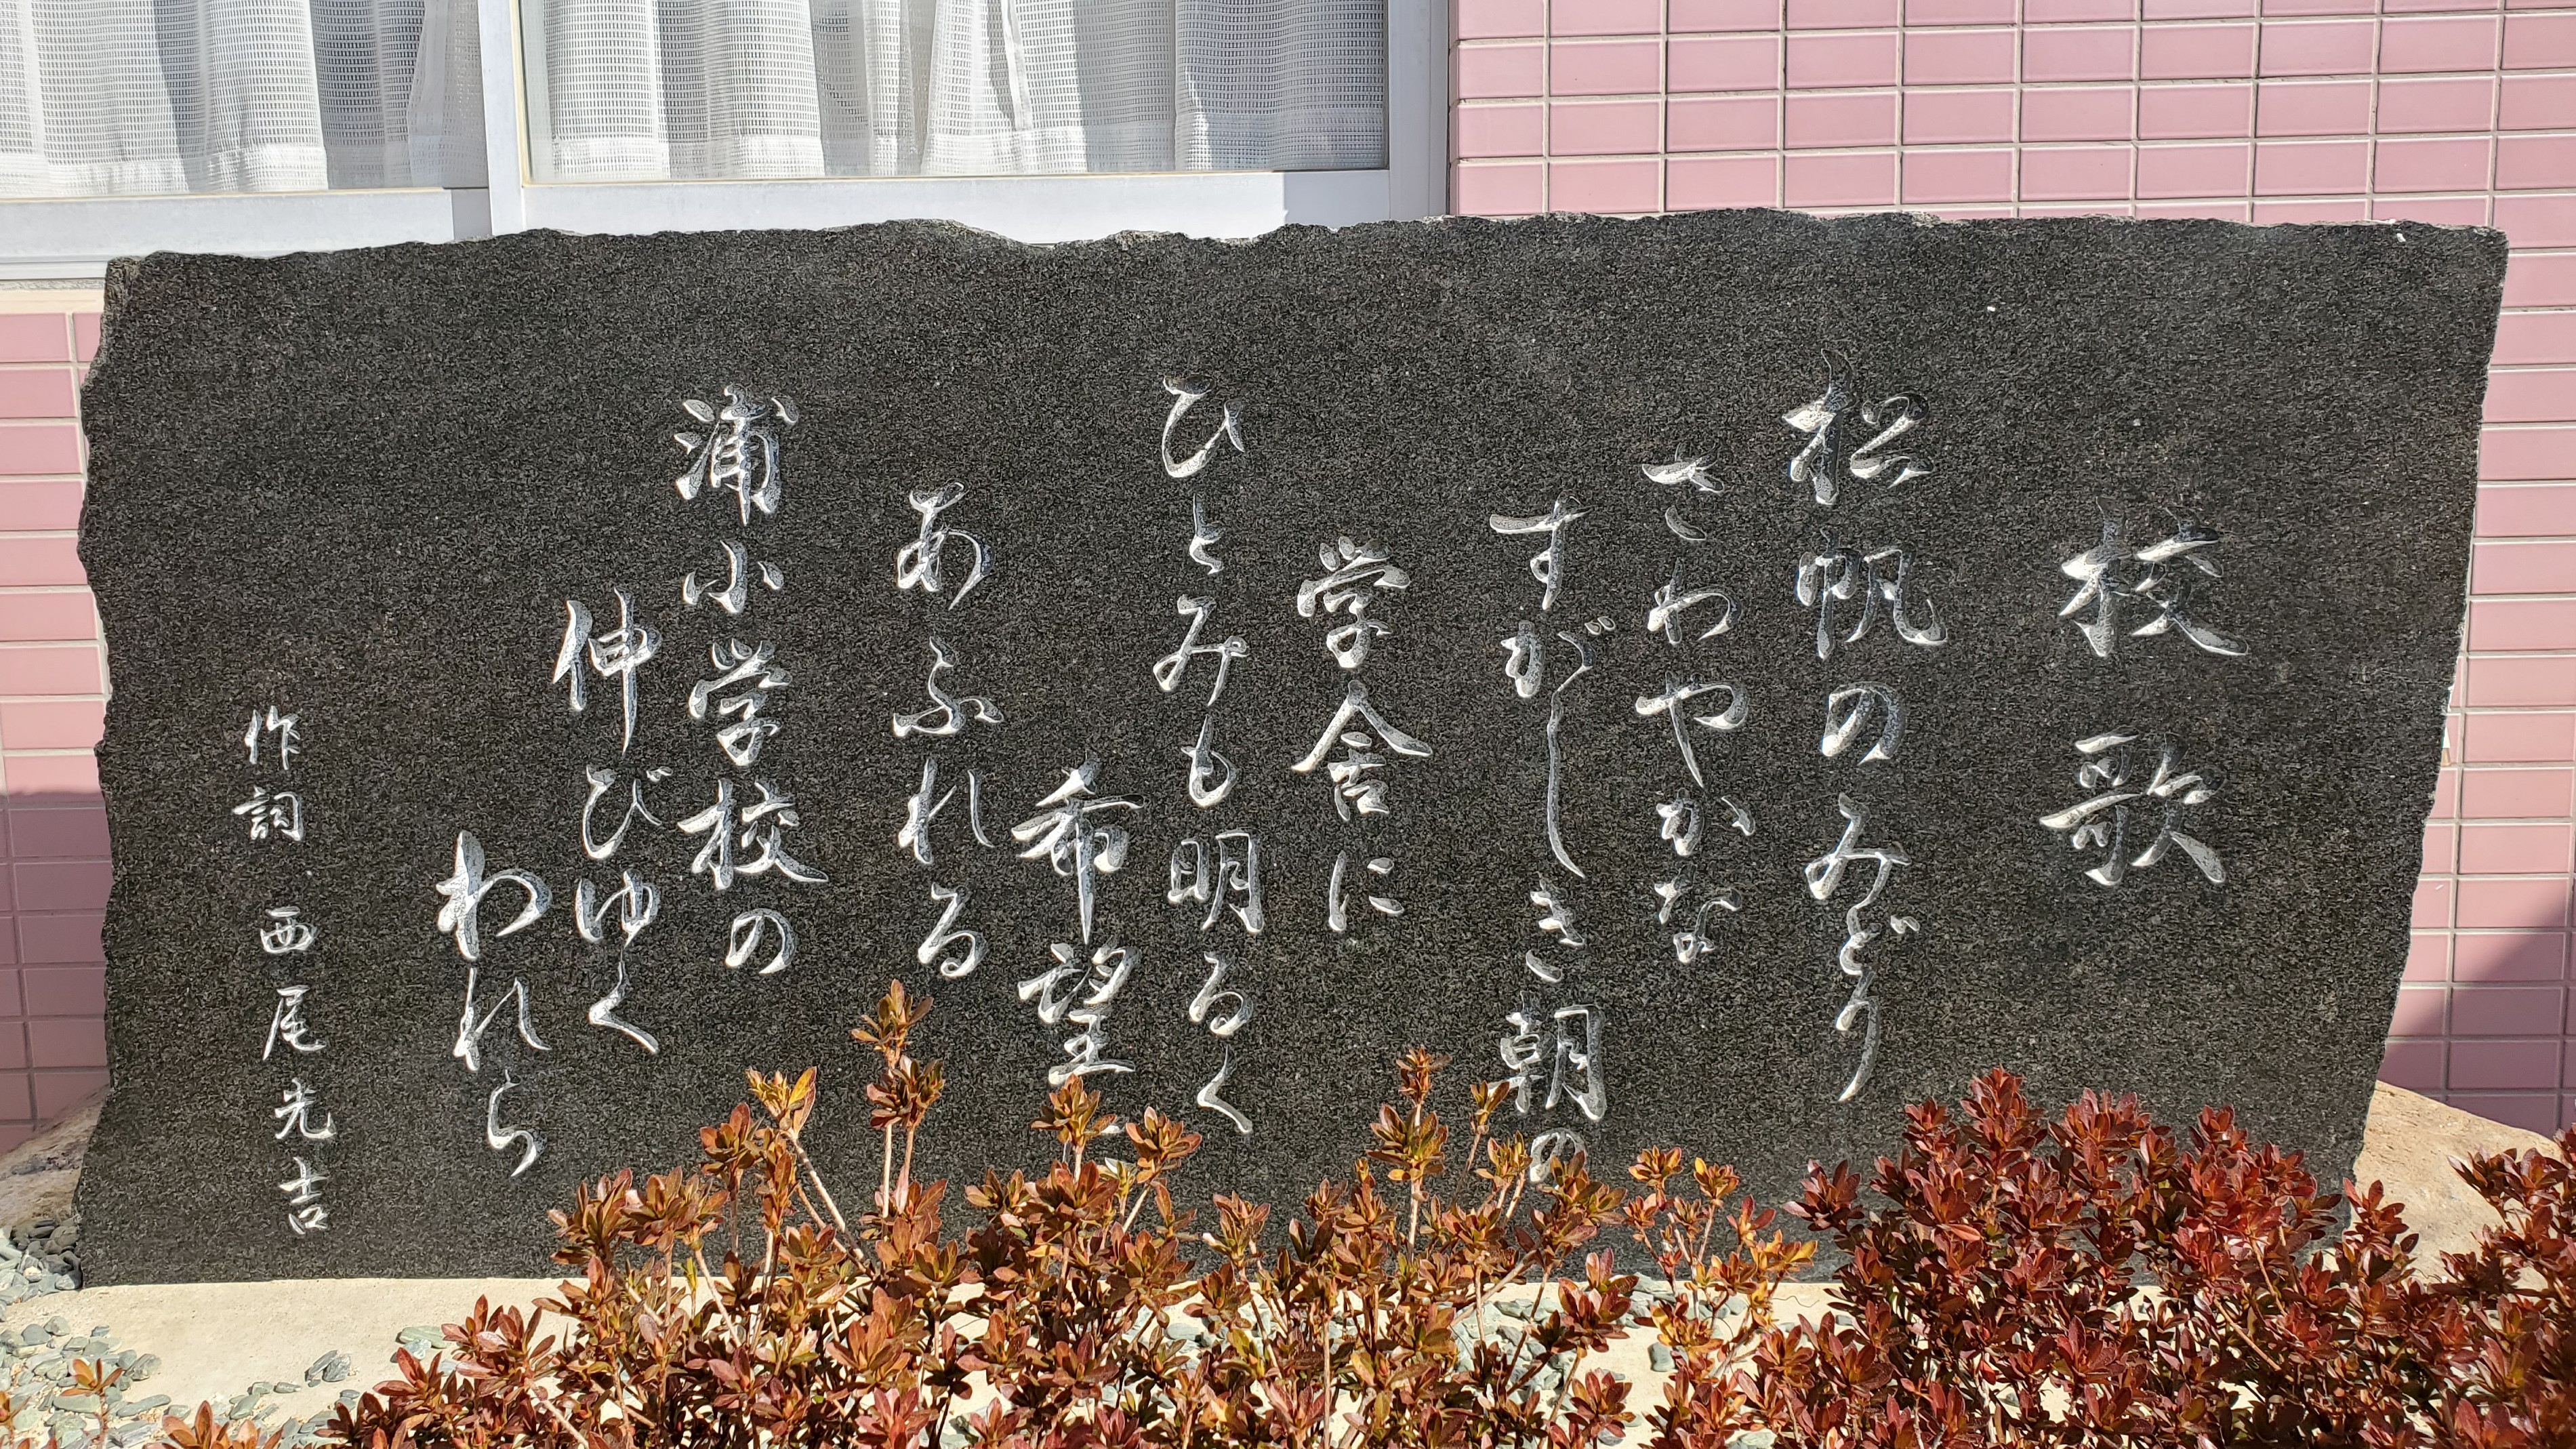 校歌
松帆のみどり
さわやかな
すがしき朝の
学舎に
ひとみも明るく
希望
あふれる
浦小学校の
伸びゆく
われら
作詞 西尾光吉